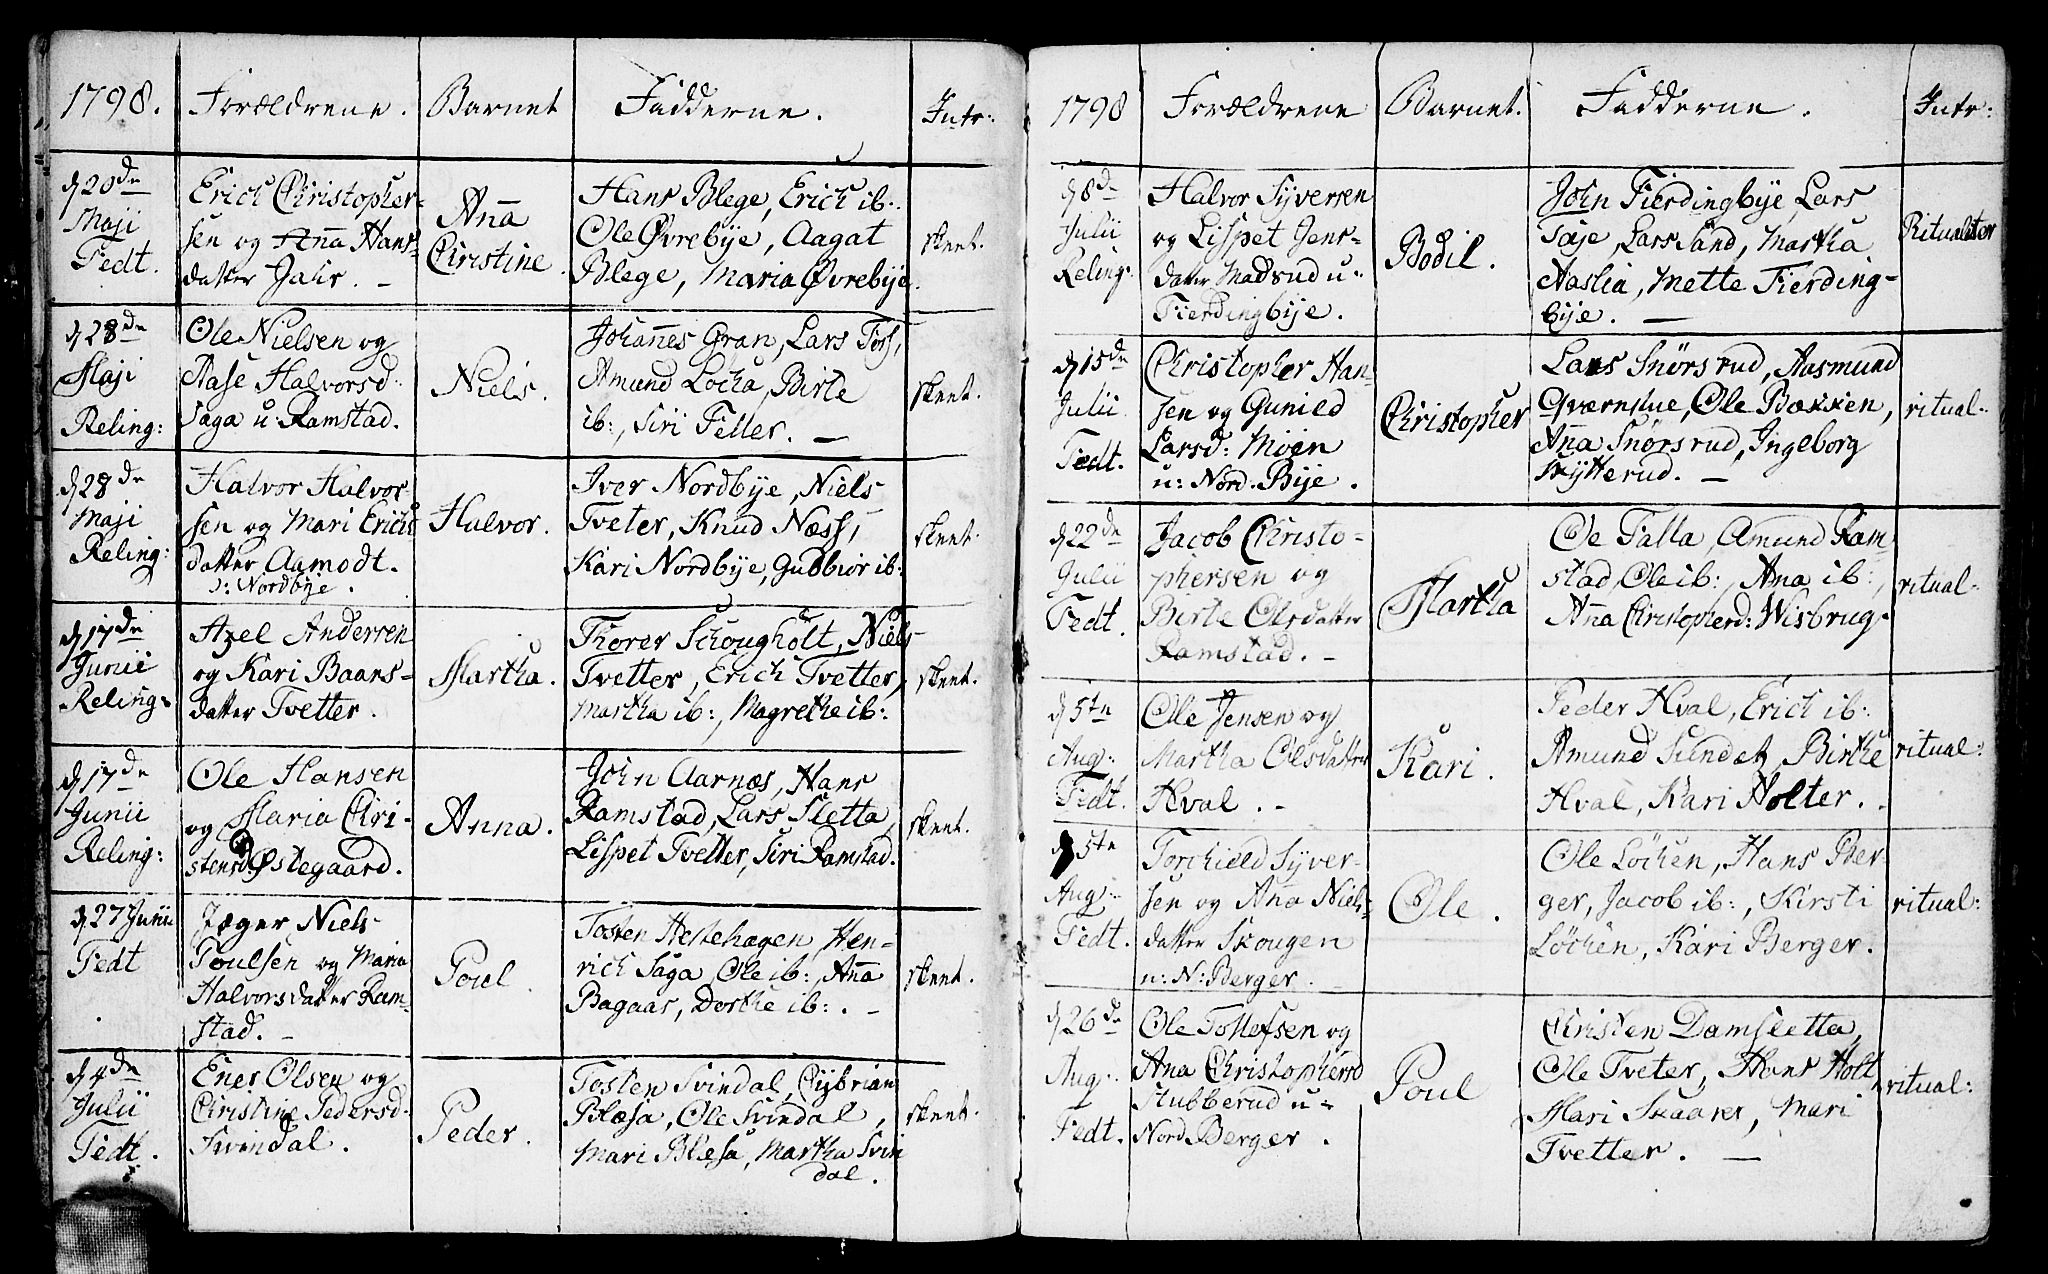 1798. Forældrene. Barnet Fadderne. Intr:
d 20de Maji Fedt.
Erich Christopher-
sen og Anna Hans-
datter Jahr. –
Ana
Christine.
Hans Blege, Erich ib:
Ole Øvrebÿe, Aagat
Blege, Maria Øvrebÿe.
skeet.
d 28de
Maji
Reling:
Ole Nielsen og
Aase Halvorsd:
Saga u: Ramstad.
Niels.
Johanes Gran, Lars Foss,
Amund Locka, Birte
ib:, Siri Feller. –
skeet.
d 28de
Maji
Reling:
Halvor Halvor-
sen og Mari Erichs
datter Aamodt.
u: Nordbÿe.
Halvor.
Iver Nordbÿe, Niels
Tveter, Knud Næss,
Kari Nordbÿe, Gubbiør ib:
skeet.
d 17de
Junii
Reling:
Axel Andersen
og Kari Baars-
datter Tvetter.
Martha.
Thorer Schougholt, Niels
Tvetter, Erich Tvetter,
Martha ib:, Magrethe ib:
skeet.
d 17de
Junii
Reling:
Ole Hansen
og Maria Chri-
stensd: Østegaard.
Anna.
John Aarnæs, Hans
Ramstad, Lars Sletta,
Lispet Tvetter, Siri Ramstad.
skeet.
d 27 Junii
Fedt
Jæger Niels
Poulsen og Maria
Halvorsdatter Ram-
stad. –
Poul.
Tosten Hestehagen, Hen-
rich Saga, Ole ib:, Ana
Bagaas, Dorthe ib:. –
skeet.
d 4de
Julii
Fedt.
Ener Olsen og
Christine Pedersd:
Svindal.
Peder.
Tosten Svindal, Cybrian
Blæsa, Ole Svindal,
Mari Blæsa, Martha Svin
dal.
skeet.
1798 Forældrene Barnet. Fadderne. Intr:
d 8de
Julii
Reling:
Halvor Sÿversen
og Lispet Jens-
datter Madsrud u:
Fierdingbÿe.
Bodil.
John Fierdingbÿe, Lars
Tøje, Lars Sand, Martha
Haslia, Mette Fierding-
bÿe. –
Ritualiter
d 15de
Julii
Fedt.
Christopher Han-
sen og Gunild
Larsd: Moen
u: Nord-Bÿe.
Christopher
Lars Snørsrud, Aasmund
Qværnstue, Ole Bakken,
Ana Snørsrud, Ingeborg
Skytterud. –
ritual:
d 22de
Julii
Fedt.
Jacob Christo-
phersen og
Birte Olsdatter
Ramstad. –
Martha
Ole Falla, Amund Ram
stad, Ole ib:, Ana ib:,
Ana Christopherd: Wisbrug.
ritual:
d 5te
Aug:
Fedt.
Ole Jensen og
Martha Olsdatter
Hval. –
Kari.
Peder Hval, Erich ib:
Amund Sundet, Birthe
Hval, Kari Holter.
ritual:
d 5te
Aug:
Fedt.
Torchield Sÿver-
sen og Ana Niels-
datter Skougen
u: N: Berger.
Ole.
Ole Løchen, Hans Ber
ger, Jacob ib:, Kirsti
Løchen, Kari Berger.
ritual:
d 26de
Aug:
Fedt.
Ole Tollefsen og
Ana Christophersd
Stubberud u:
Nord Berger.
Poul
Christen Damsletta,
Ole Tveter, Hans Holt
Mari Skaarer, Mari
Tvetter. –
ritual: